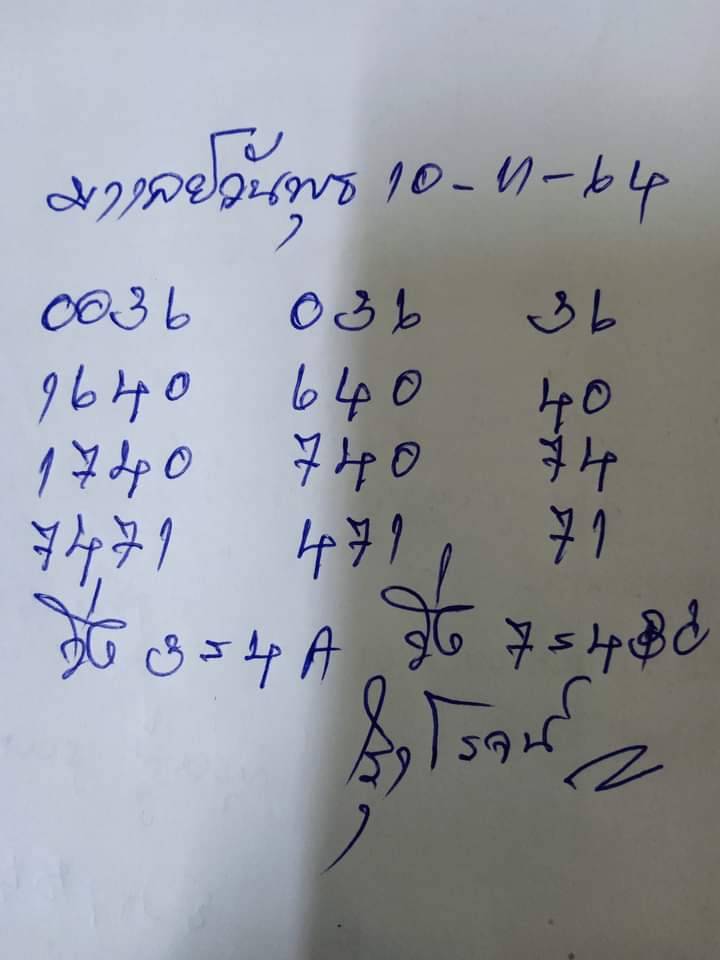 มาเลย์วันพุธ 10-11-64
0036 036 36
1640 640 40
1740 740 74
7471 471 71
วิ่ง 3=4 A วิ่ง 7=4
โรจน์